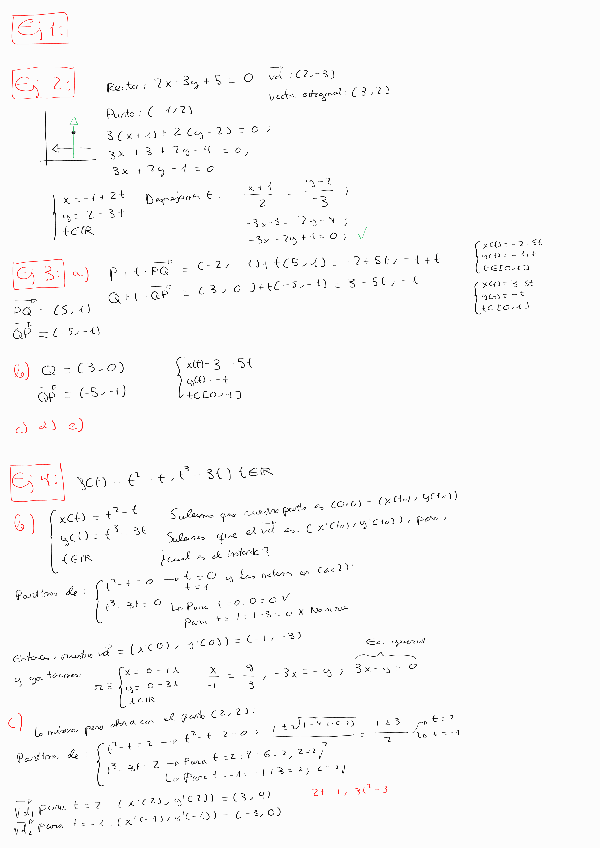 Ej 1:
Ej 2: Recta: 2x - 3y + 5 = 0 vd: (2,-3)
vector ortogonal: (3,2)
Punto: (-1,2)
3(x+1) + 2(y-2) = 0;
3x + 3 + 2y - 4 = 0;
3x + 2y - 1 = 0
x = -1 + 2t
y = 2 - 3t
t ∈ R
Despejamos t: x+1/2 = y-2/-3;
-3x-3 = 2y-4;
-3x-2y+1=0; ✓
Ej 3: a) P + t · PQ = (-2, ) + t(5,1) = -2+5t, -1+t
Q + t · QP = (3,0) + t(-5,-1) = 3-5t, -t
PQ = (5,1)
QP = (-5,-1)
x(t) = -2 5t
y(t) = -1+t
t ∈ [0,1]
x(t) = 3 5t
y(t) = -t
t ∈ [0,1]
b) Q = (3,0)
QP = (-5,-1)
x(t) = 3 - 5t
y(t) = -t
t ∈ [0,1]
c) d) e)
Ej 4: γ(t) = t² - t, t³ - 3t) t ∈ R
b) x(t) = t² - t
y(t) = t³ - 3t
t ∈ R
Sabemos que nuestro punto es (0,0) = (x(t₀), y(t₀))
Sabemos que el vd es: (x'(t₀), y'(t₀)), pero,
¿cual es el instante?
Partimos de: t² - t = 0 → t = 0
t = 1
t³ - 3t = 0 Para t 0, 0 = 0 ✓
Para t = 1: 1 - 3 = 0 x No
Entonces, nuestro vd = (x'(0), y'(0)) = (-1, -3)
y ya tenemos r ≡ x = 0 - 1λ
y = 0 - 3λ
x/-1 = y/-3, -3x = -y; 3x - y = 0
Ec. general
c) Lo mismo pero ahora con el punto (2,2).
Partimos de t² - t = 2 → t² - t - 2 = 0; = 1 ± 3 / 2 → t = 2
→ t = -1
t³ - 3t = 2 → Para t = 2: 8 - 6 = 2, 2 = 2
→ Para t = -1: -1 + 3 = 2,
vd₁ para t = 2: (x'(2), y'(2)) = (3, 9)
vd₂ para t = -1: (x'(-1), y'(-1)) = (-3, 0)
2t - 1, 3t² - 3